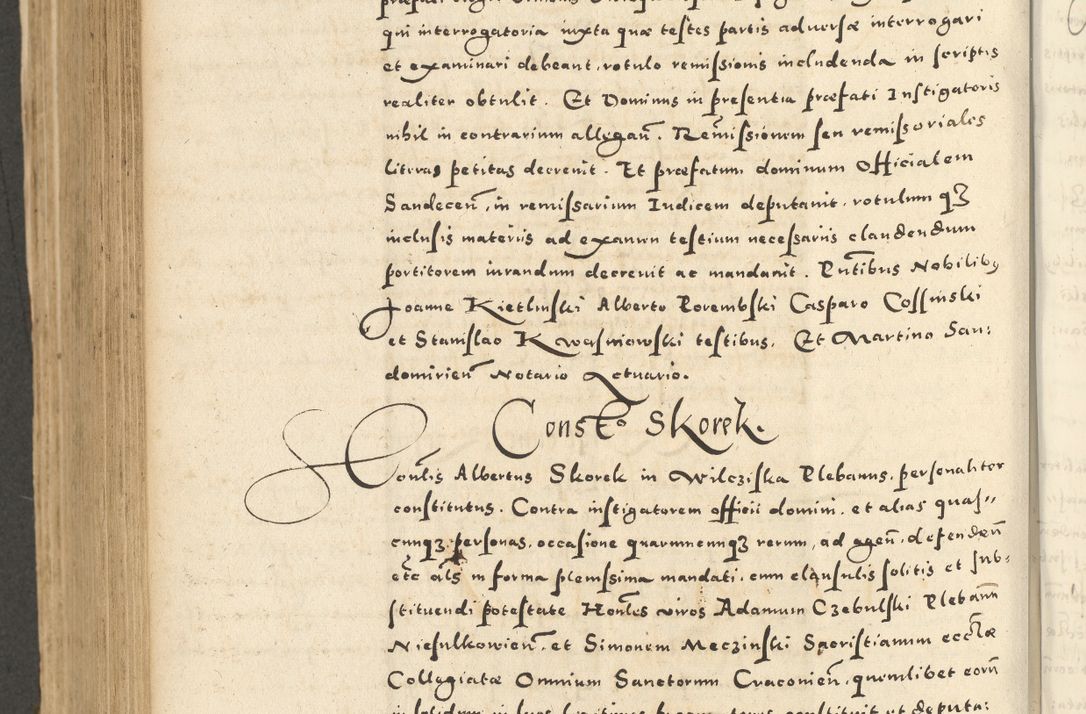 qui interrogatoria iuxta quæ testes partis adversæ interrogari
et examinari debeant, rotulo remissionis includenda in scriptis
realiter obtulit. Et Dominus in præsentia præfati Instigatoris
nihil in contrarium allegan̄. Remissionem seu remissoriales
literas petitas decrevit. Et præfatum dominum Officialem
Sandecen̄, in remissarium Iudicem deputavit, rotulum q3
inclusis materiis ad examen testium necessariis claudendum
portitorem iurandum decrevit ac mandavit. Pn̄tibus Nobilibus
Joanne Kietlinski Alberto Porembski Casparo Cossinski
et Stanislao Kwasniowski testibus. Et Martino San:
domirien̄ Notario Actuario.
Constō Skorek.
Honlis Albertus Skorek in Wilcziska Plebanus, personaliter
constitutus. Contra instigatorem officii domini, et alias quas//
cunq3 personas, occasione quarumcunq3 rerum, ad agen̄, defenden̄
etc̄ als̄ in forma plenissima mandati, cum clausulis solitis et sub:
stituendi potestate Honles viros Adamum Czebulski Plebanū
Niesulkowien̄, et Simonem Meczinski Sacristianum eccłæ
Collegiatæ Omnium Sanctorum Cracovien̄, quemlibet eorū